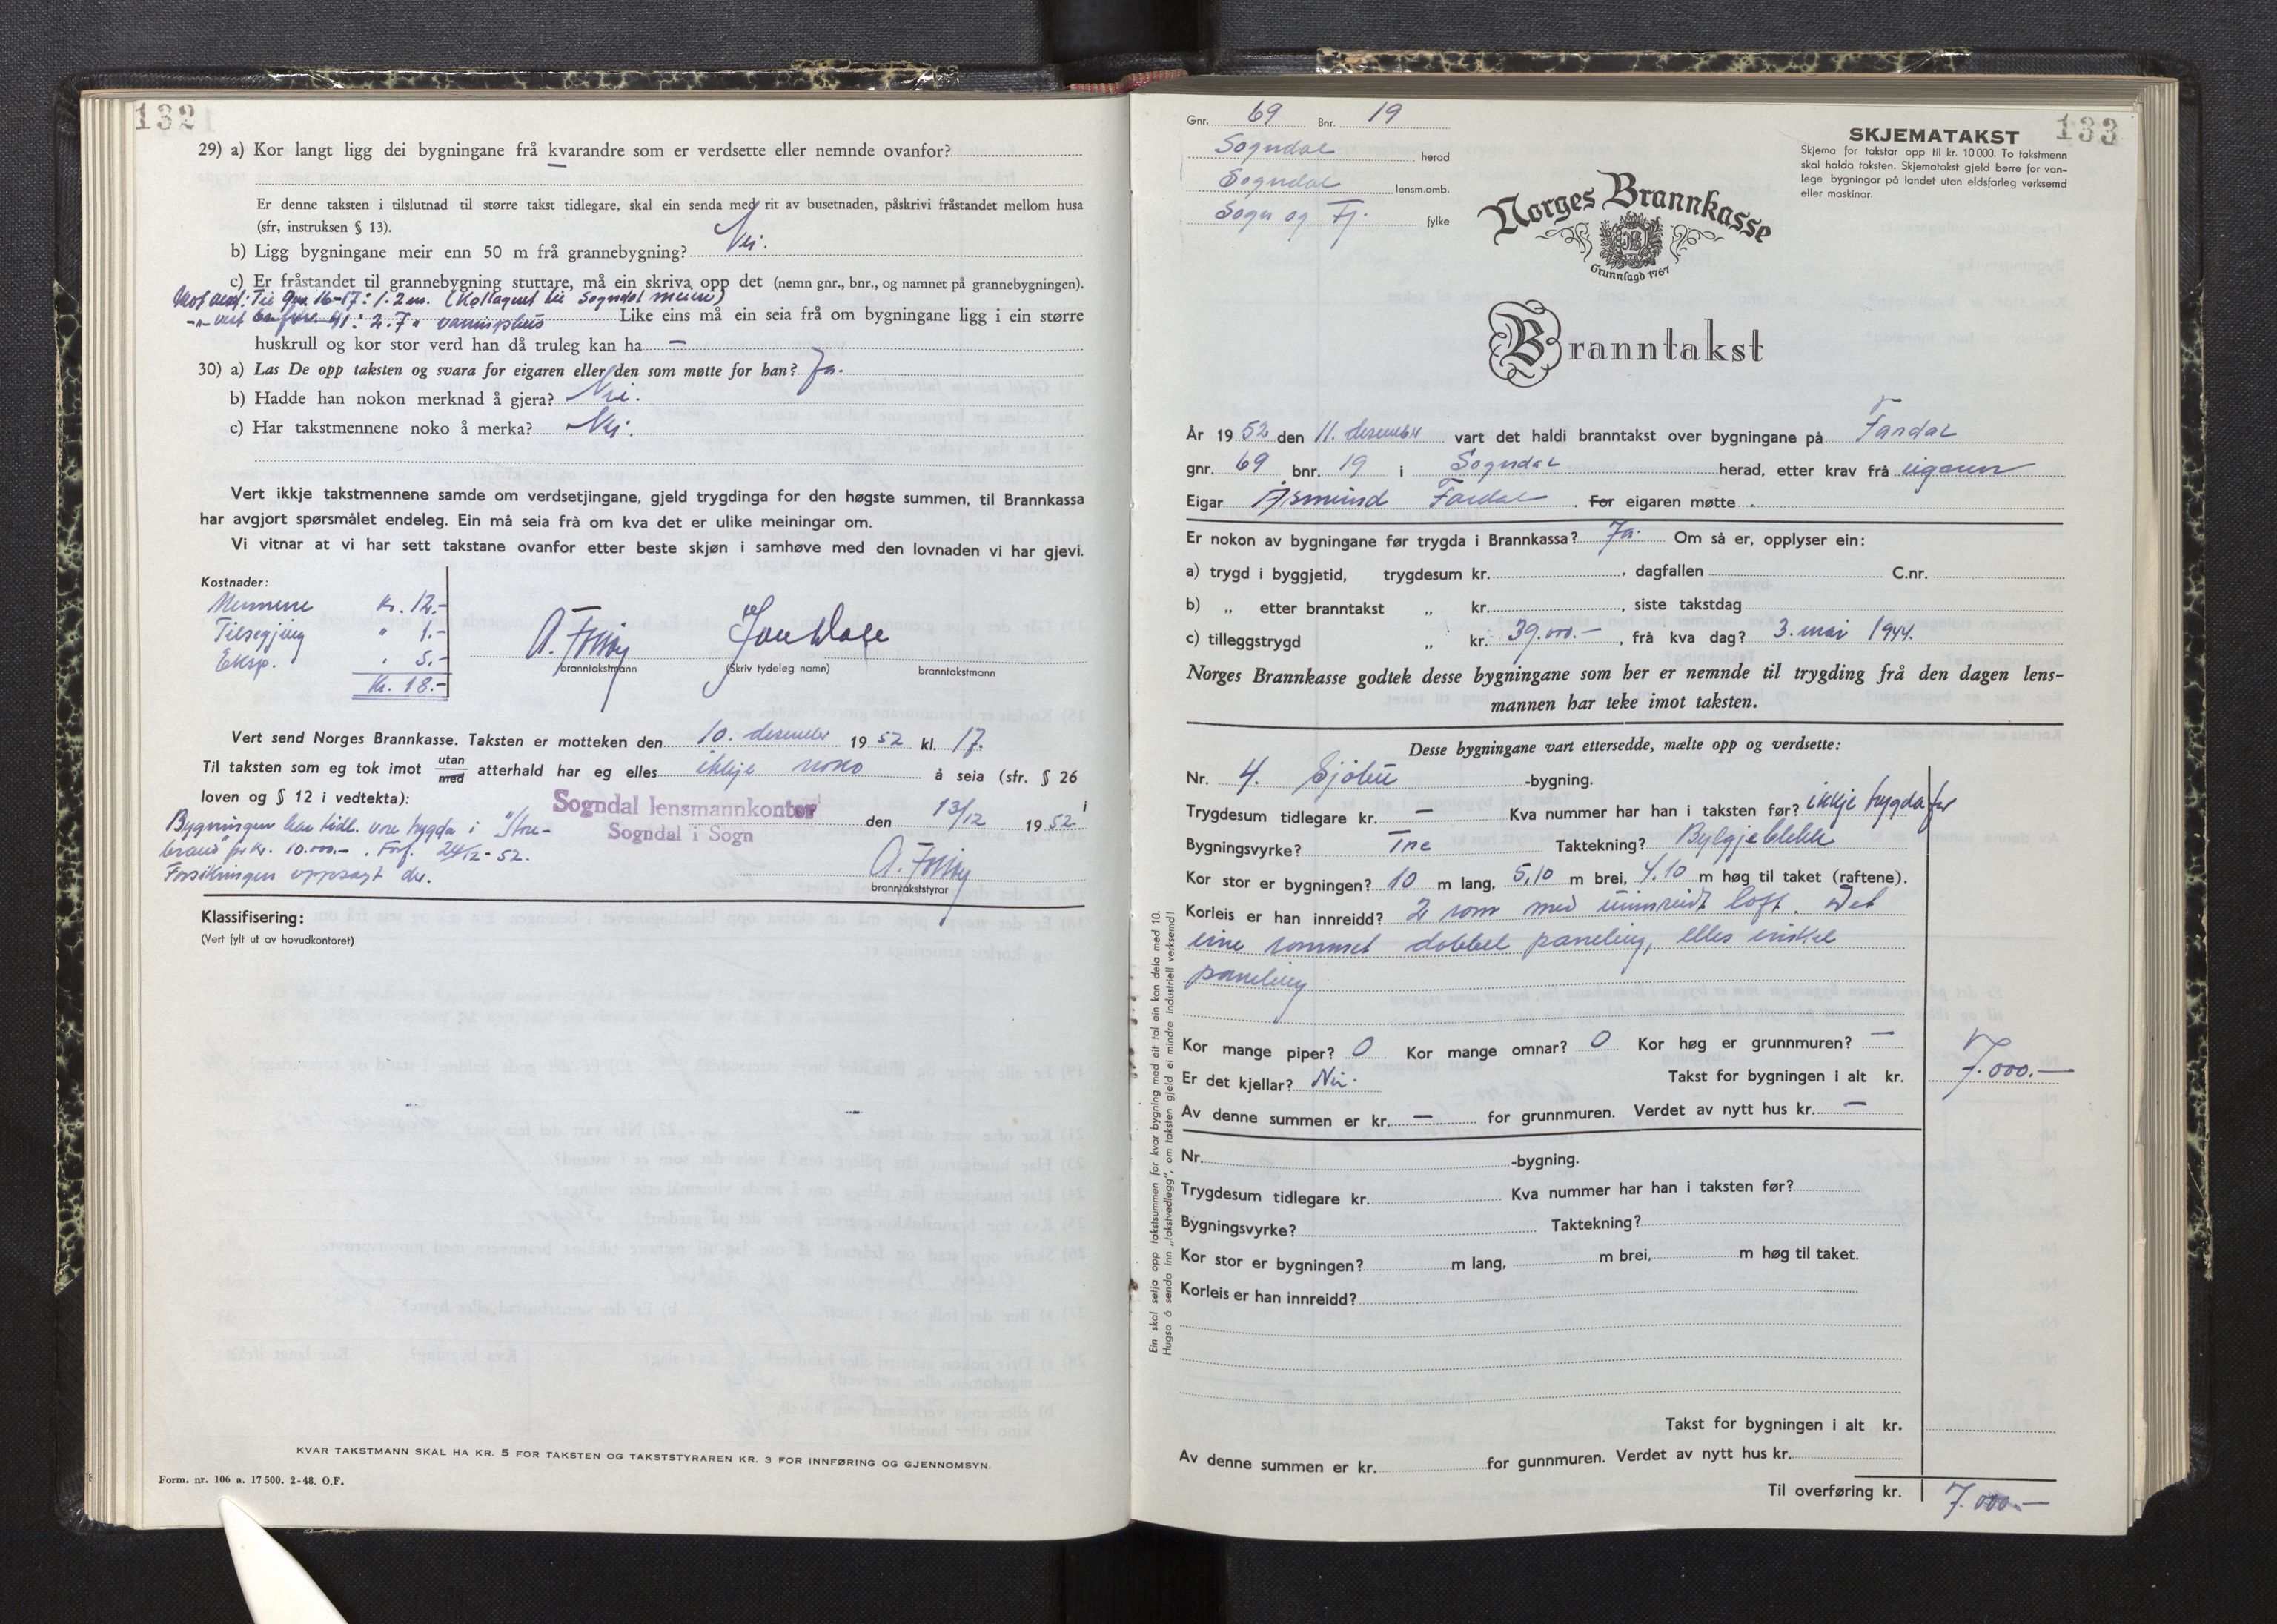 132
29) a) Kor langt ligg dei bygningane frå kvarandre som er verdsette eller nemnde ovanfor?
—
Er denne taksten i tilslutnad til større takst tidlegare, skal ein senda med rit av busetnaden, påskrivi fråstandet mellom husa
(sfr, instruksen § 13).
b) Ligg bygningane meir enn 50 m frå grannebygning? Nei.
c) Er fråstandet til grannebygning stuttare, må ein skriva opp det (nemn gnr., bnr., og namnet på grannebygningen).
Mot aust: Til gnr. 16-17: 1.2 m. (Kollagret til Sogndal meieri)
-"- vest 41: 2.7 " Like eins må ein seia frå om bygningane ligg i ein større
huskrull og kor stor verd han då truleg kan ha —
30) a) Las De opp taksten og svara for eigaren eller den som møtte for han? Ja.
b) Hadde han nokon merknad å gjera? Nei.
c) Har takstmennene noko å merka? Nei.
Vert ikkje takstmennene samde om verdsetjingane, gjeld trygdinga for den høgste summen, til Brannkassa
har avgjort spørsmålet endeleg. Ein må seia frå om kva det er ulike meiningar om.
Vi vitnar at vi har sett takstane ovanfor etter beste skjøn i samhøve med den lovnaden vi har gjevi.
Kostnader:
Mennene Kr. 12.-
Tilsegjing " 1.-
Eksp. " 5.-
Kr. 18.-
branntakstmann (Skriv tydeleg namn) branntakstmann
Vert send Norges Brannkasse. Taksten er motteken den 10. desember 19 52 kl. 17.
Til taksten som eg tok imot utan med atterhald har eg elles ikkje noko å seia (sfr. § 26
loven og § 12 i vedtekta):
Sogndal lensmannkontor i
Sogndal i Sogn
den 13/12 19 52
Bygningen har tidl. vore trygda i "Store-
brand" for kr. 10.000.- . Forf. 24/12-52.
Forsikringen oppsagt der.
branntakststyrar
Klassifisering:
(Vert fylt ut av hovudkontoret)
KVAR TAKSTMANN SKAL HA KR. 5 FOR TAKSTEN OG TAKSTSTYRAREN KR. 3 FOR INNFØRING OG GJENNOMSYN.
Form. nr. 106 a. 17 500. 2-48. O.F.
133
Gnr. 69 Bnr. 19
Sogndal herad
Sogndal lensm.omb.
Sogn og Fj. fylke
SKJEMATAKST
Skjema for takstar opp til kr. 10 000. To takstmenn
skal halda taksten. Skjematakst gjeld berre for van-
lege bygningar på landet utan eldsfarleg verksemd
eller maskinar.
Norges Brannkasse
Grunnlagd 1767
Branntakst
År 19 52 den 11. desember vart det haldi branntakst over bygningane på Fardal
gnr. 69 bnr. 19 i Sogndal herad, etter krav frå eigaren
Eigar Åsmund Fardal . For eigaren møtte .
Er nokon av bygningane før trygda i Brannkassa? Ja. Om så er, opplyser ein:
a) trygd i byggjetid, trygdesum kr. , dagfallen C.nr.
b) „ etter branntakst „ kr. , siste takstdag
c) tilleggstrygd „ kr. 39.000.- , frå kva dag? 3. mai 1944.
Norges Brannkasse godtek desse bygningane som her er nemnde til trygding frå den dagen lens-
mannen har teke imot taksten.
Desse bygningane vart ettersedde, mælte opp og verdsette:
Nr. 4. Sjøbu -bygning.
Trygdesum tidlegare kr. — Kva nummer har han i taksten før? ikkje trygda før
Bygningsvyrke? Tre Taktekning? Bylgjeblekk
Kor stor er bygningen? 10 m lang, 5,10 m brei, 4.10 m høg til taket (raftene).
Korleis er han innreidd? 2 rom med uinnreidt loft. Det
eine rommet dobbel paneling, elles enkel
paneling
Kor mange piper? 0 Kor mange omnar? 0 Kor høg er grunnmuren? —
Er det kjellar? Nei. Takst for bygningen i alt kr. 7.000.—
Av denne summen er kr. — for grunnmuren. Verdet av nytt hus kr. —
Nr. -bygning.
Trygdesum tidlegare kr. Kva nummer har han i taksten før?
Bygningsvyrke? Taktekning?
Kor stor er bygningen? m lang, m brei, m høg til taket.
Korleis er han innreidd?
Takst for bygningen i alt kr.
Av denne summen er kr. for gunnmuren. Verdet av nytt hus kr.
Til overføring kr. 7.000.—
Ein skal setja opp takstsummen for kvar bygning med eit tal ein kan dela med 10.
Hugsa å senda inn „takstvedlegg", om taksten gjeld ei mindre industriell verksemd!